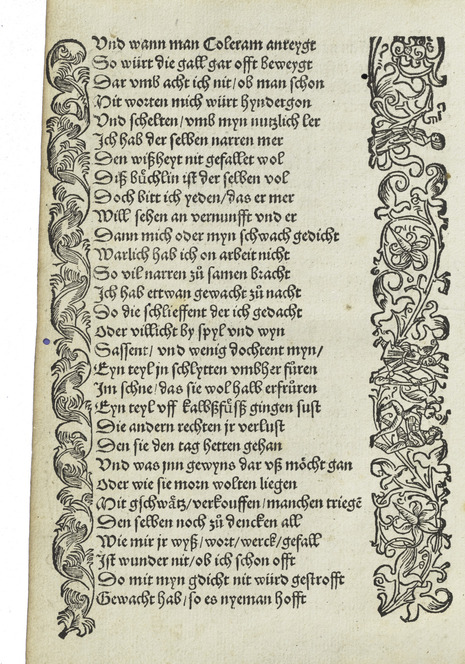 Vnd wann man Coleram anreygt
So würt die gall gar offt beweygt
Dar vmb acht ich nit/ ob man schon
Mit worten mich würt hyndergon
Vnd schelten/ vmb myn nutzlich ler
Ich hab der selben narren mer
Den wißheyt nit gefallet wol
Diß büchlin ist der selben vol
Doch bitt ich yeden/ das er mer
Will sehen an vernunfft vnd er
Dann mich oder myn schwach gedicht
Warlich hab ich on arbeit nicht
So vil narren zů samen bracht
Ich hab ettwan gewacht zů nacht
Do die schlieffent der ich gedacht
Oder villicht by spyl vnd wyn
Sassent/ vnd wenig dochtent myn/
Eyn teyl jn schlytten vmbher fůren
Im schne/ das sie wol halb erfrůren
Eyn teyl vff kalbßfůsß gingen sust
Die andern rechten jr verlust
Den sie den tag hetten gehan
Vnd was jnn gewyns dar vß möcht gan
Oder wie sie morn wolten liegen
Mit gschwätz/ verkouffen/ manchen triegē
Den selben noch zů dencken all
Wie mir jr wyß/ wort/ werck/ gefall
Ist wunder nit/ ob ich schon offt
Do mit myn gdicht nit würd gestrofft
Gewacht hab/ so es nyeman hofft